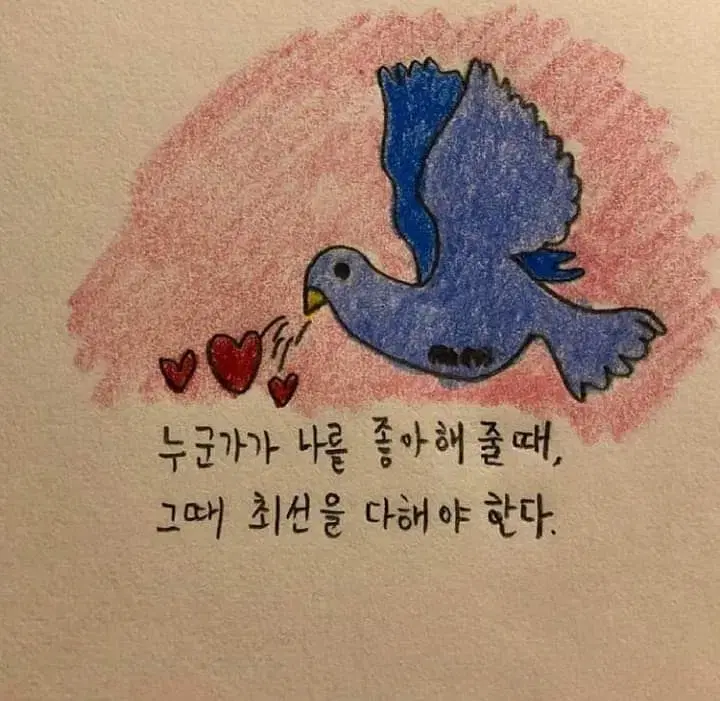 누군가가 나를 좋아해 줄때,
그때 최선을 다해야 한다.